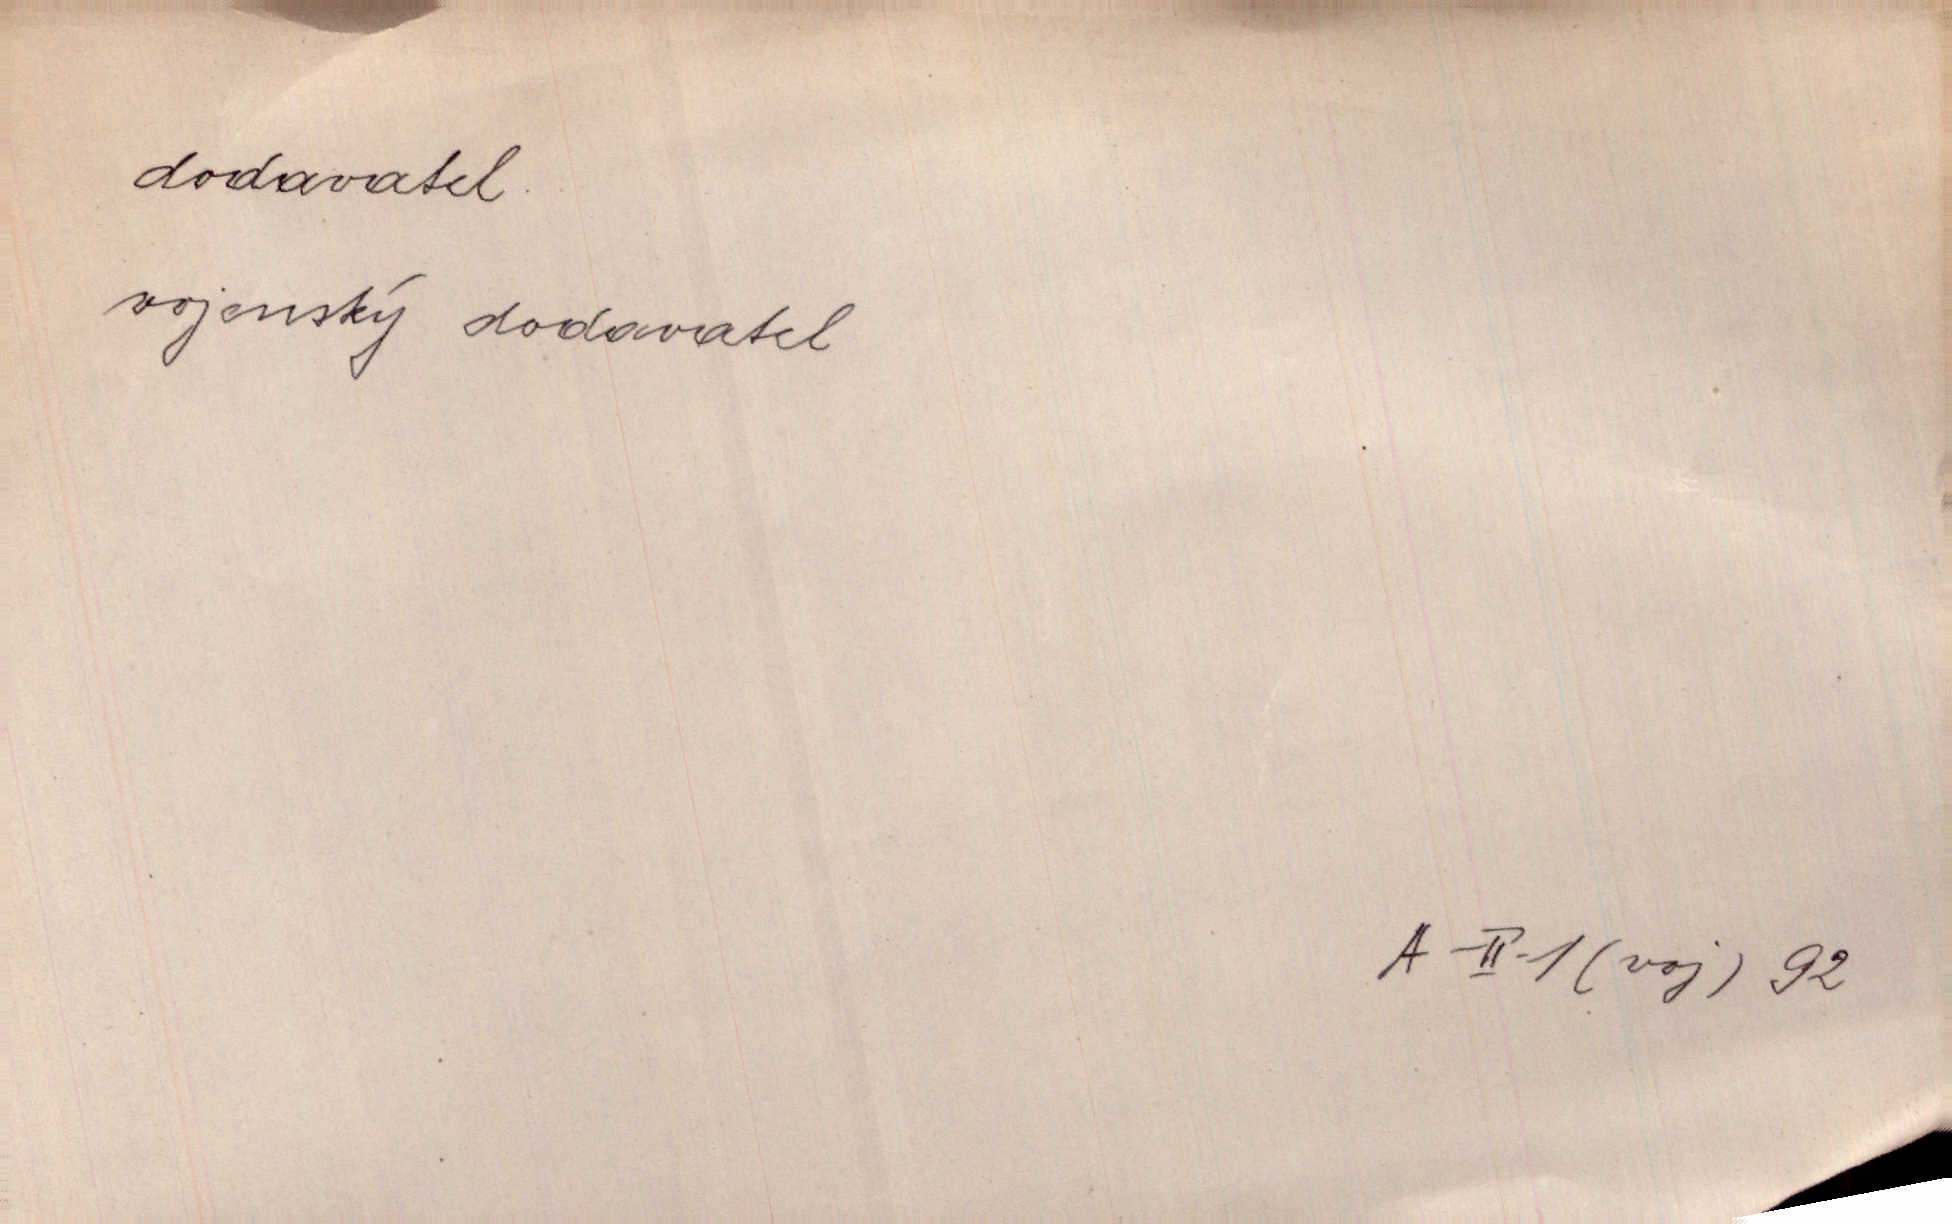 dodavatel.
vojenský dodavatel
A-II-1 (voj) 92